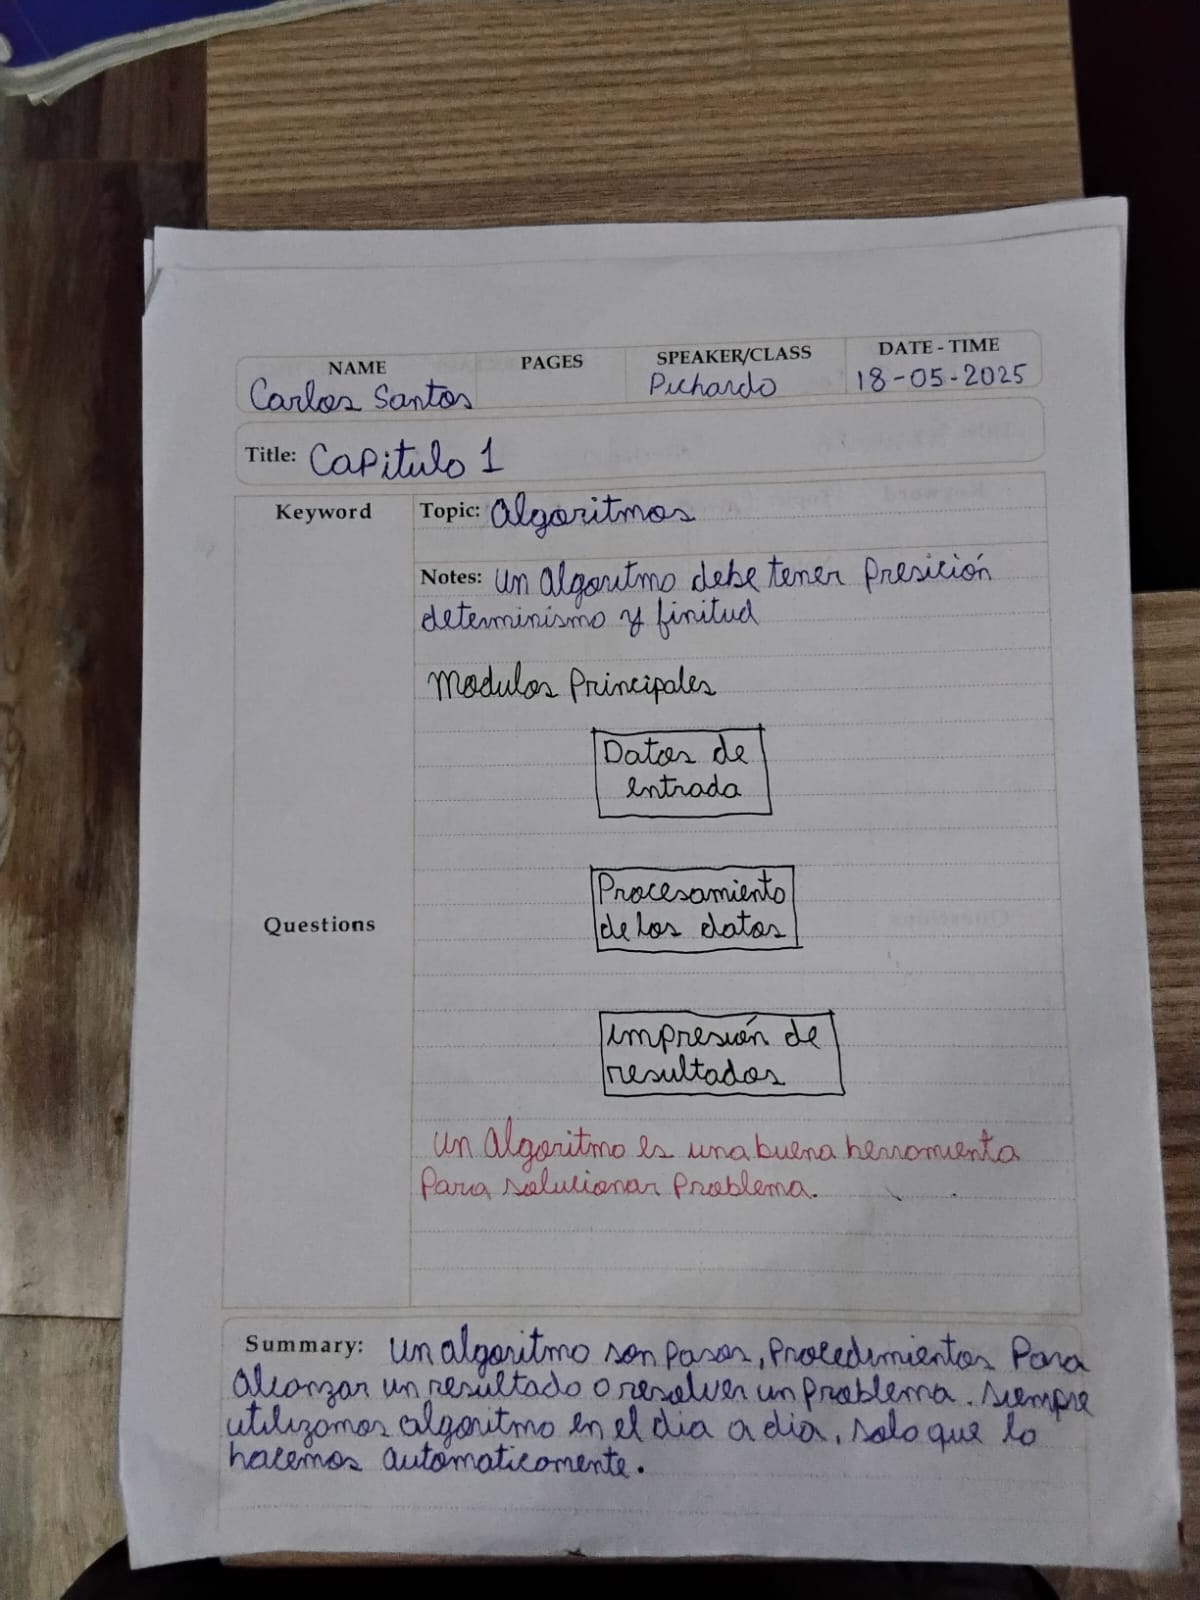 NAME PAGES SPEAKER/CLASS DATE - TIME
Carlos Santos Pichardo 18-05-2025
Title: Capitulo 1
Keyword Topic: Algoritmos
Notes: un algoritmo debe tener Presición
determinismo y finitud
Modulos Principales
Datos de
entrada
Procesamiento
de los datos
Questions
impresión de
resultados
un algoritmo es una buena herramienta
Para solucionar Problema.
Summary: un algoritmo son pasos, Procedimientos Para
alcanzar un resultado o resolver un problema. siempre
utilizamos algoritmo en el dia a dia, solo que lo
hacemos automaticamente.